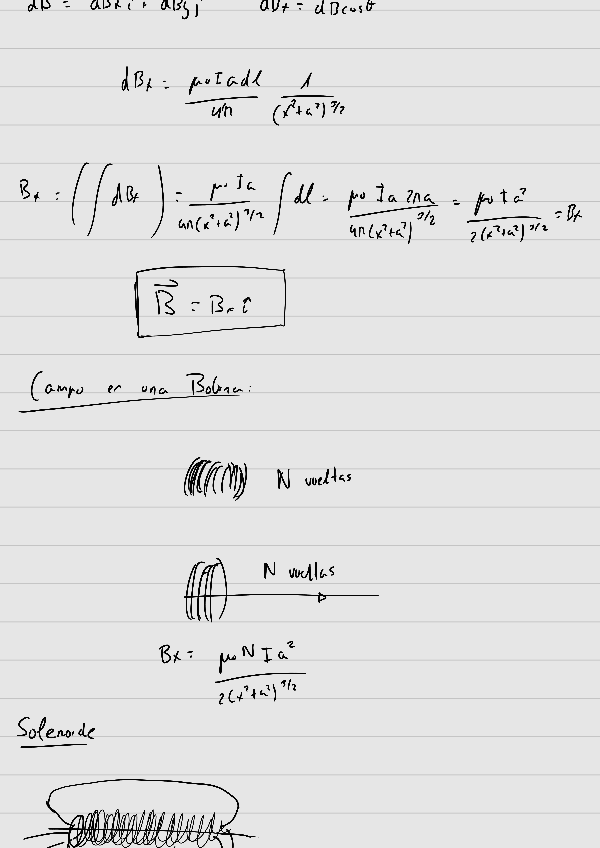 dB = dBx i + dBy j    dBx = dB cos θ
dBx = μ₀ I a dl / 4π · 1 / (x²+a²)^3/2
Bx = (∫ dBx) = μ₀ I a / 4π(x²+a²)^3/2 ∫ dl = μ₀ I a 2πa / 4π(x²+a²)^3/2 = μ₀ I a² / 2(x²+a²)^3/2 = Bx
B⃗ = Bx î
Campo en una Bobina:
N vueltas
N vueltas
Bx = μ₀ N I a² / 2(x²+a²)^3/2
Solenoide